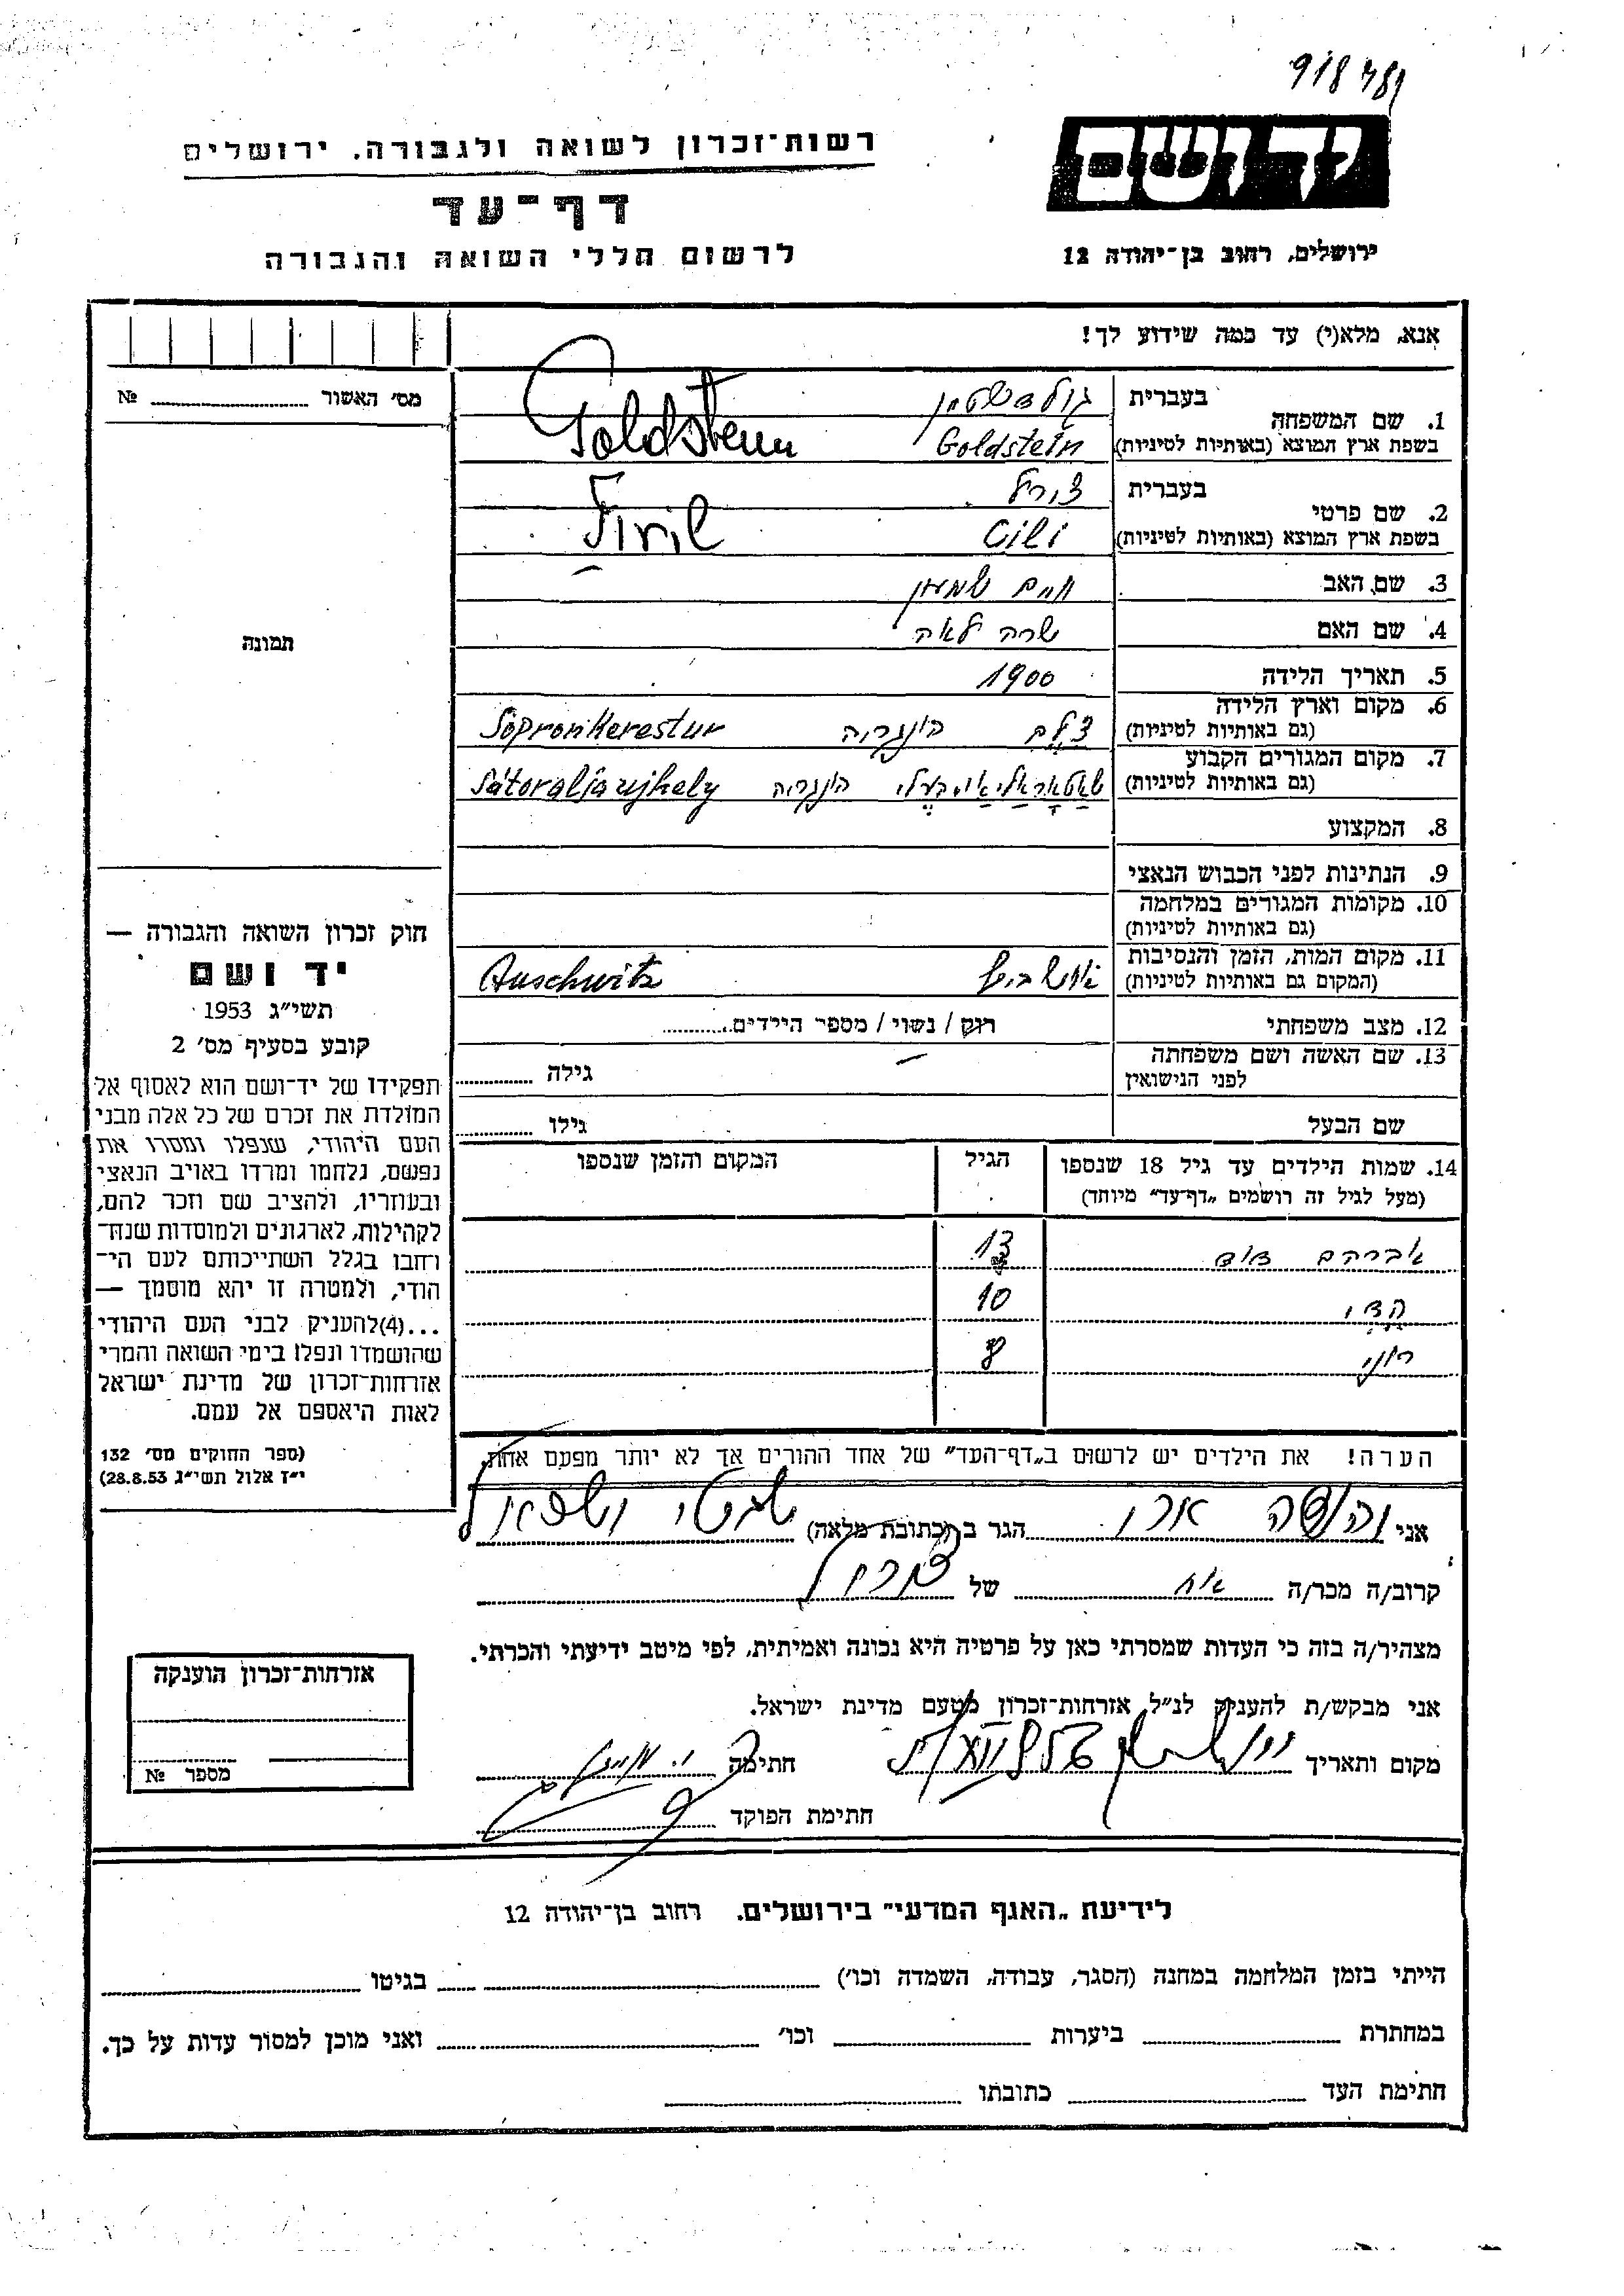 918 481
יד ושם
רשות־זכרון לשואה ולגבורה, ירושלים
דף־עד
לרשום חללי השואה והגבורה
ירושלים, רחוב בן־יהודה 12
אנא, מלא(י) עד כמה שידוע לך!
מס׳ האשור №
1. שם המשפחה
בעברית גולדשטיין
בשפת ארץ המוצא (באותיות לטיניות) Goldstein Goldstein
2. שם פרטי
בעברית
בשפת ארץ המוצא (באותיות לטיניות) Cili
3. שם האב חיים שמעון
4. שם האם שרה לאה
5. תאריך הלידה 1900
6. מקום וארץ הלידה
(גם באותיות לטיניות) צלם הונגריה Sopronkerestur
7. מקום המגורים הקבוע
(גם באותיות לטיניות) הונגריה Sátoraljaujhely
8. המקצוע
9. הנתינות לפני הכבוש הנאצי
10. מקומות המגורים במלחמה
(גם באותיות לטיניות)
11. מקום המות, הזמן והנסיבות
(המקום גם באותיות לטיניות) אושביץ Auschwitz
12. מצב משפחתי רוק / נשוי / מספר הילדים
13. שם האשה ושם משפחתה
לפני הנישואין גילה
שם הבעל גילו
14. שמות הילדים עד גיל 18 שנספו
(מעל לגיל זה רושמים „דף־עד״ מיוחד)
הגיל
המקום והזמן שנספו
אברהם דוד 13
10
8
הערה! את הילדים יש לרשום ב„דף־העד״ של אחד ההורים אך לא יותר מפעם אחת.
תמונה
חוק זכרון השואה והגבורה —
יד ושם
תשי״ג 1953
קובע בסעיף מס׳ 2
תפקידו של יד־ושם הוא לאסוף אל
המולדת את זכרם של כל אלה מבני
העם היהודי, שנפלו ומסרו את
נפשם, נלחמו ומרדו באויב הנאצי
ובעוזריו, ולהציב שם וזכר להם,
לקהילות, לארגונים ולמוסדות שנח־
רחבו בגלל השתייכותם לעם הי־
הודי, ולמטרה זו יהא מוסמך —
...(4)להעניק לבני העם היהודי
שהושמדו ונפלו בימי השואה והמרי
אזרחות־זכרון של מדינת ישראל
לאות היאספם אל עמם.
(ספר החוקים מס׳ 132
י״ז אלול תשי״ג 28.8.53)
אני הגר ב (כתובת מלאה)
קרוב/ה מכר/ה אח של
מצהיר/ה בזה כי העדות שמסרתי כאן על פרטיה היא נכונה ואמיתית, לפי מיטב ידיעתי והכרתי.
אני מבקש/ת להעניק לנ״ל אזרחות־זכרון מטעם מדינת ישראל.
מקום ותאריך חתימה
חתימת הפוקד
אזרחות־זכרון הוענקה
מספר №
לידיעת „האגף המדעי״ בירושלים, רחוב בן־יהודה 12
הייתי בזמן המלחמה במחנה (הסגר, עבודה, השמדה וכו׳) בגיטו
במחתרת ביערות וכו׳ ואני מוכן למסור עדות על כך.
חתימת העד כתובתו